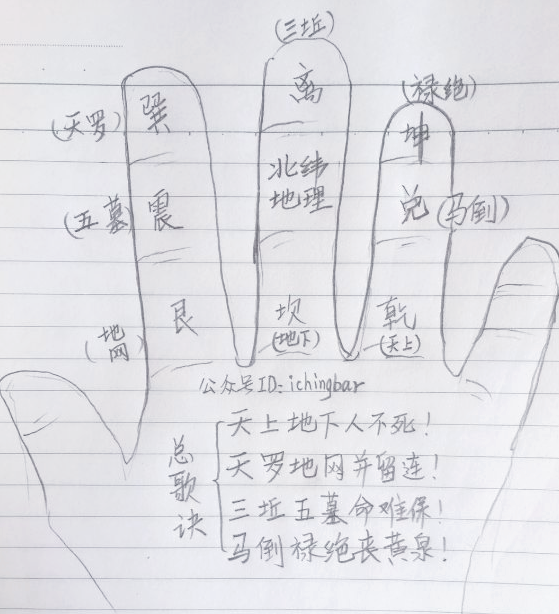 (三坵)
离
(禄绝)
(天罗) 巽
坤
北纬
地理
(五墓) 震
兑 (马倒)
艮
坎
(地下)
乾
(天上)
(地网)
公众号ID:ichingbar
总歌诀
天上地下人不死!
天罗地网并留连!
三坵五墓命难保!
马倒禄绝丧黄泉!